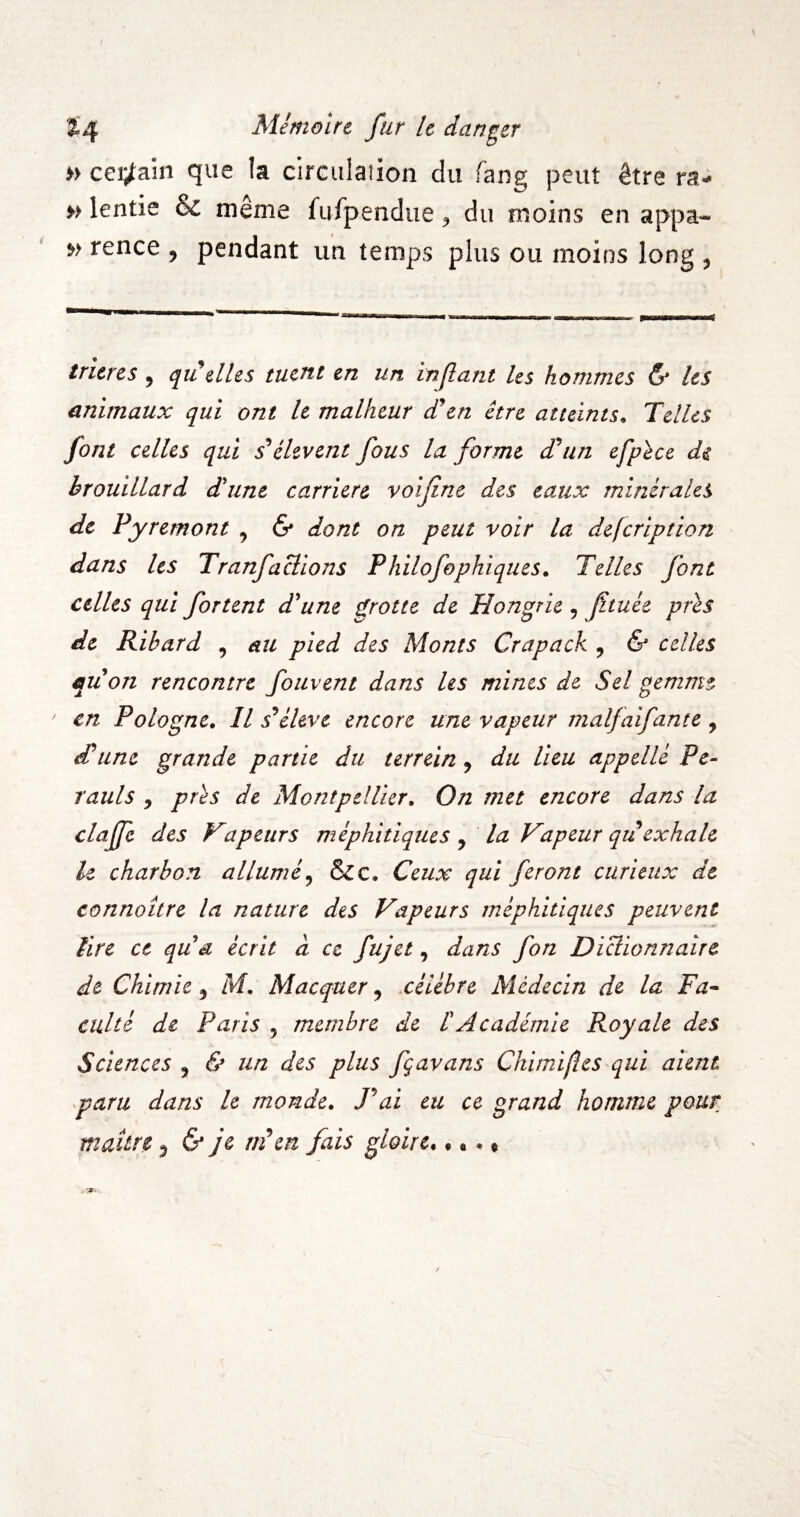 24 Mémoire ſur le danger
» certain que la circulation du ſang peut être ra-
» lentie & même ſuſpendue, du moins en appa-
» rence, pendant un temps plus ou moins long,
trieres, qu'elles tuent en un inſtant les hommes & les
animaux qui ont le malheur d'en être atteints. Telles
ſont celles qui s'élevent ſous la forme d'un eſpèce de
brouillard d'une carriere voiſine des eaux minérales
de Pyremont, & dont on peut voir la deſcription
dans les Tranſactions Philoſophiques. Telles ſont
celles qui ſortent d'une grotte de Hongrie, ſituée près
de Ribard, au pied des Monts Crapack, & celles
qu'on rencontre ſouvent dans les mines de Sel gemme
en Pologne. Il s'éleve encore une vapeur malfaiſante,
d'une grande partie du terrein, du lieu appellé Pe-
rauls, près de Montpellier. On met encore dans la
claſſe des Vapeurs méphitiques, la Vapeur qu'exhale
le charbon allumé, &c. Ceux qui ſeront curieux de
connoître la nature des Vapeurs méphitiques peuvent
lire ce qu'a écrit à ce ſujet, dans ſon Dictionnaire
de Chimie, M. Macquer, célèbre Médecin de la Fa-
culté de Paris, membre de l'Académie Royale des
Sciences, & un des plus ſçavans Chimiſtes qui aient
paru dans le monde. J'ai eu ce grand homme pour
maître, & je m'en fais gloire.....